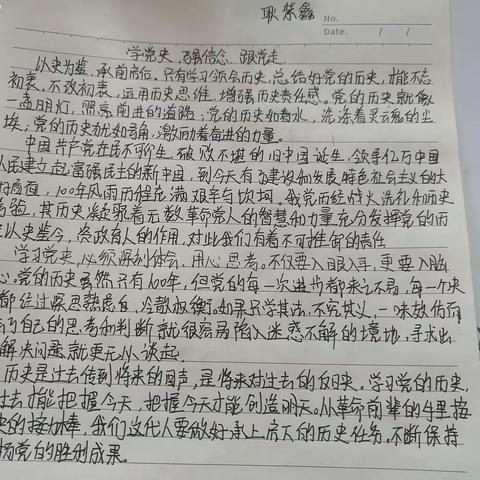 耿紫鑫
No.
Date. / /
学党史 强信念 跟党走
以史为鉴,承前启后,只有学习领会历史,总结好党的历史,才能不忘
初衷,不改初衷,运用历史思维,增强历史责任感。党的历史就像
一盏明灯,照亮前进的道路;党的历史如春水,洗涤着灵魂的尘
埃;党的历史犹如号角,激励着奋进的力量。
中国共产党在民不聊生,破败不堪的旧中国诞生,领导亿万中国
人民建立起富强民主的新中国,到今天有了建设和发展特色社会主义的大
好局面,100年风雨历程充满艰辛与坎坷,我党历经战火洗礼和历史
考验,其历史凝聚着无数革命党人的智慧和力量充分发挥党的历
史以史鉴今,资政育人的作用,对此我们有着不可推卸的责任
学习党史,必须深刻体会,用心思考。不仅要入眼入耳,更要入脑
心,党的历史虽然只有100年,但党的每一次进步都来之不易,每一个决
都经过深思熟虑,冷静权衡,如果只学其法,不究其义,一味放仿而
自己的思考和判断就很容易陷入迷惑不解的境地,寻求出
解决问题就更无从谈起。
历史是过去传到将来的回声,是将来对过去的反映。学习党的历史,
过去才能把握今天,把握今天才能创造明天。从革命前辈的手里接
的接力棒,我们这代人要做好承上启下的历史任务,不断保持
扬党的胜利成果。